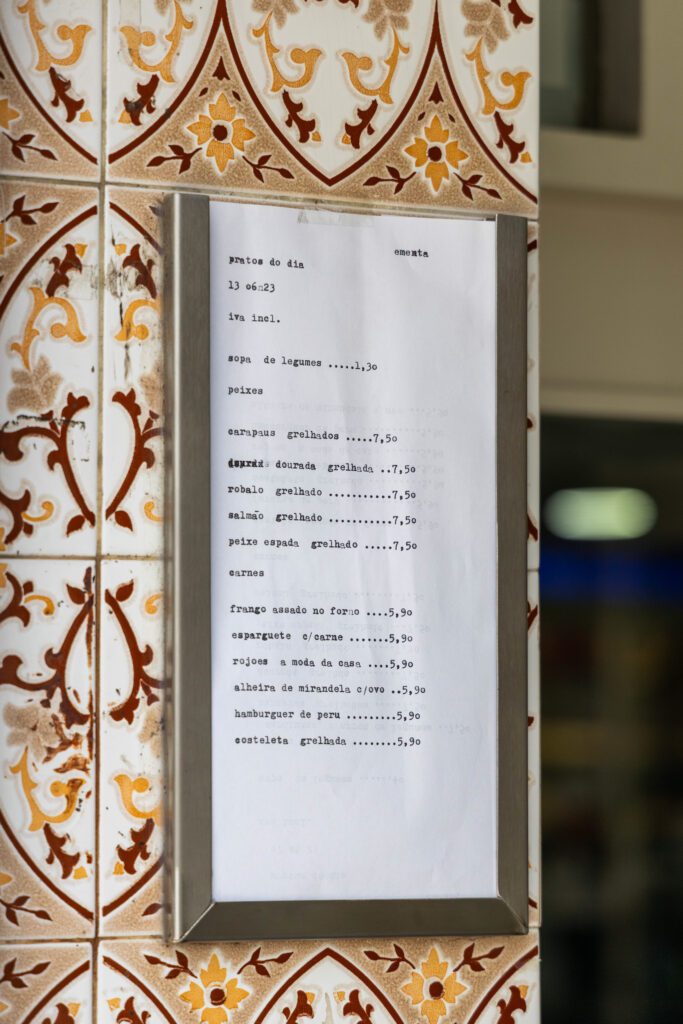 ementa
pratos do dia
13 06 23
iva incl.
sopa de legumes .....1,30
peixes
carapaus grelhados .....7,50
dourada grelhada ..7,50
robalo grelhado ...........7,50
salmão grelhado ...........7,50
peixe espada grelhado .....7,50
carnes
frango assado no forno ....5,90
esparguete c/carne .......5,90
rojoes a moda da casa ....5,90
alheira de mirandela c/ovo ..5,90
hamburguer de peru .........5,90
costeleta grelhada ........5,90